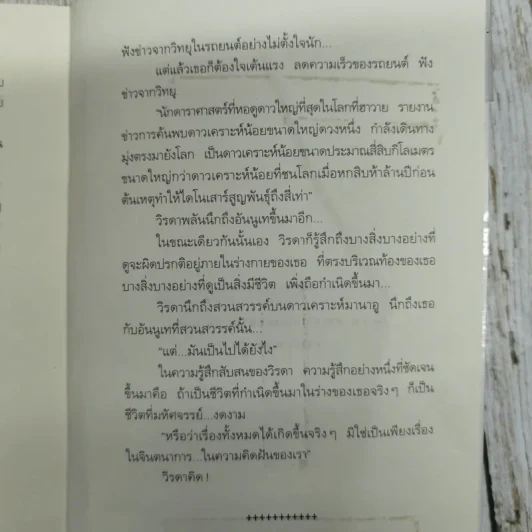 ฟังข่าวจากวิทยุในรถยนต์อย่างไม่ตั้งใจนัก...
แต่แล้วเธอก็ต้องใจเต้นแรง ลดความเร็วของรถยนต์ ฟัง
ข่าวจากวิทยุ
"นักดาราศาสตร์ที่หอดูดาวใหญ่ที่สุดในโลกที่ฮาวาย รายงาน
ข่าวการค้นพบดาวเคราะห์น้อยขนาดใหญ่ดวงหนึ่ง กำลังเดินทาง
มุ่งตรงมายังโลก เป็นดาวเคราะห์น้อยขนาดประมาณสี่สิบกิโลเมตร
ขนาดใหญ่กว่าดาวเคราะห์น้อยที่ชนโลกเมื่อหกสิบห้าล้านปีก่อน
ต้นเหตุทำให้ไดโนเสาร์สูญพันธุ์ถึงสี่เท่า"
วิรดาพลันนึกถึงอันนูเทขึ้นมาอีก...
ในขณะเดียวกันนั้นเอง วิรดาก็รู้สึกถึงบางสิ่งบางอย่างที่
ดูจะผิดปรกติอยู่ภายในร่างกายของเธอ ที่ตรงบริเวณท้องของเธอ
บางสิ่งบางอย่างที่ดูเป็นสิ่งมีชีวิต เพิ่งถือกำเนิดขึ้นมา...
วิรดานึกถึงสวนสวรรค์บนดาวเคราะห์มานาอู นึกถึงเธอ
กับอันนูเทที่สวนสวรรค์นั้น...
"แต่...มันเป็นไปได้ยังไง"
ในความรู้สึกสับสนของวิรดา ความรู้สึกอย่างหนึ่งที่ชัดเจน
ขึ้นมาคือ ถ้าเป็นชีวิตที่กำเนิดขึ้นมาในร่างของเธอจริงๆ ก็เป็น
ชีวิตที่มหัศจรรย์...งดงาม
"หรือว่าเรื่องทั้งหมดได้เกิดขึ้นจริงๆ มิใช่เป็นเพียงเรื่อง
ในจินตนาการ...ในความคิดฝันของเรา"
วิรดาคิด!
+++++++++++